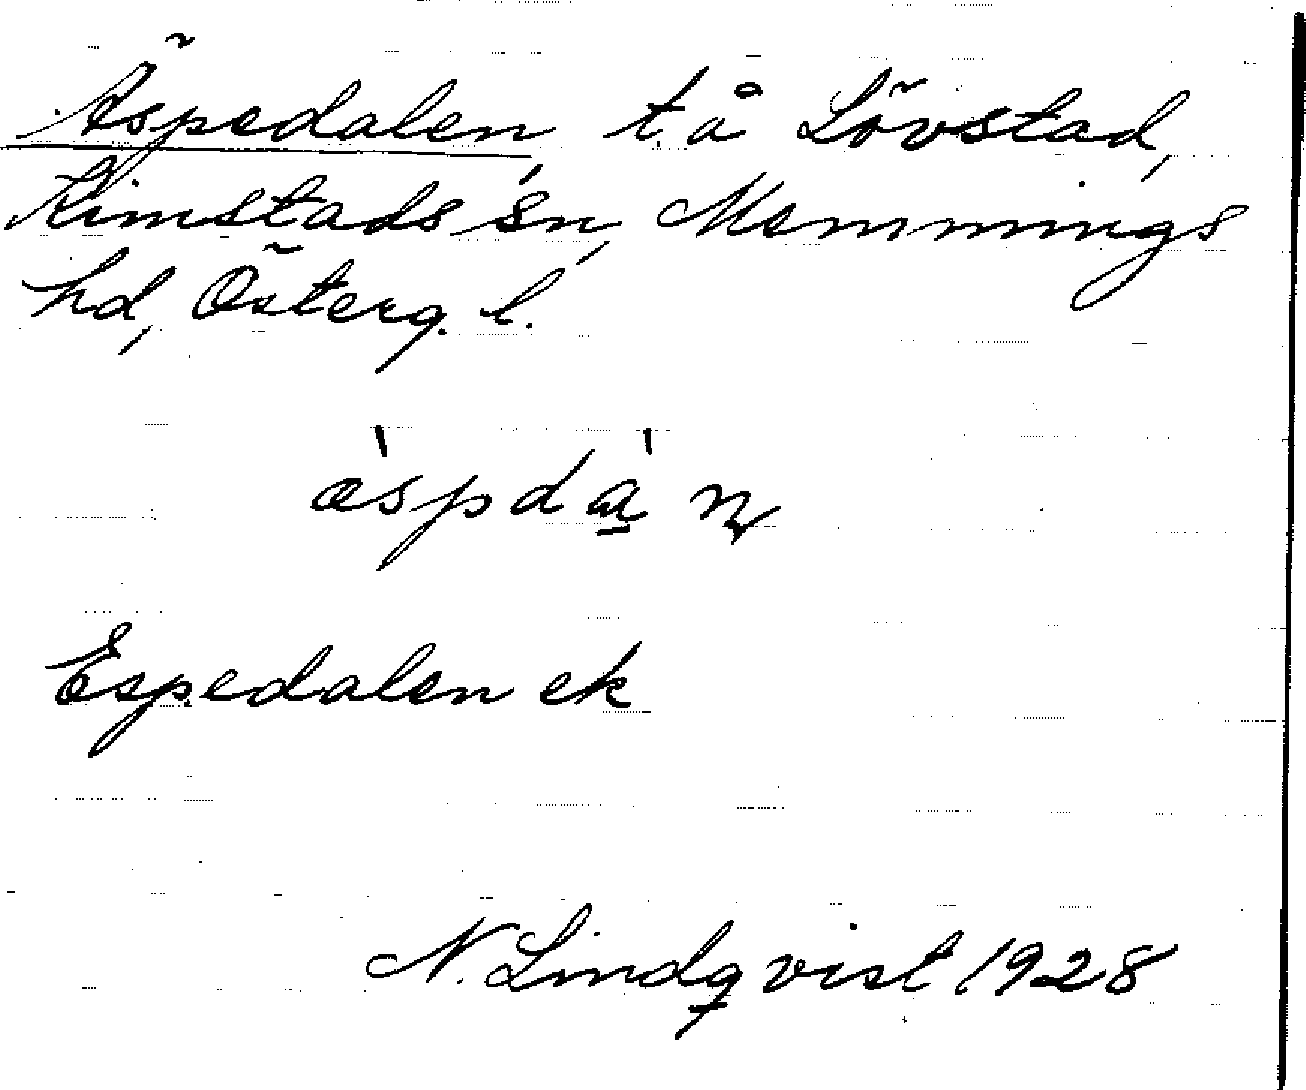 Äspedalen, t. å Lövstad,
Kimstads sn, Memmings
hd, Österg. l.
àspdà n
Espedalen ek
N. Lindqvist 1928